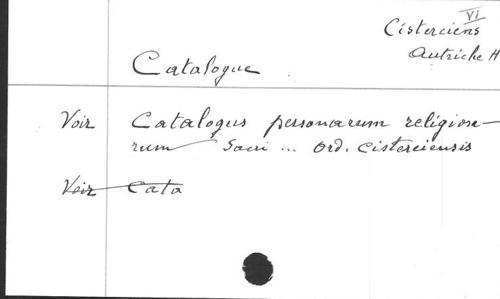 VI
Cisterciens
Autriche H
Catalogue
Voir Catalogus personarum religio-
rum Sacri ... Ord. Cisterciensis
Voir Cata